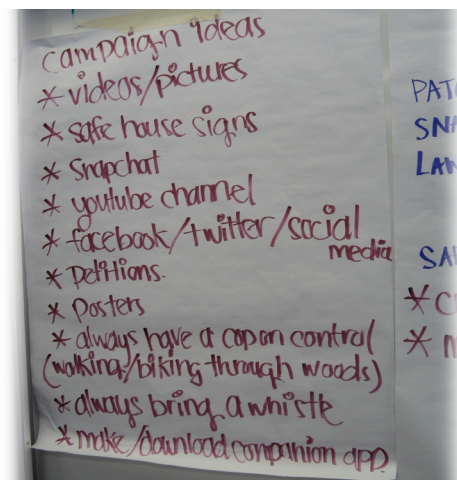 campaign ideas
* videos/pictures
* safe house signs
* Snapchat
* youtube channel
* facebook/twitter/social
media
* Petitions.
* Posters
* always have a cop on control
(walking/biking through woods)
* always bring a whistle
* make/download companion app
PAT
SNA
LAN
SA
* C
* M